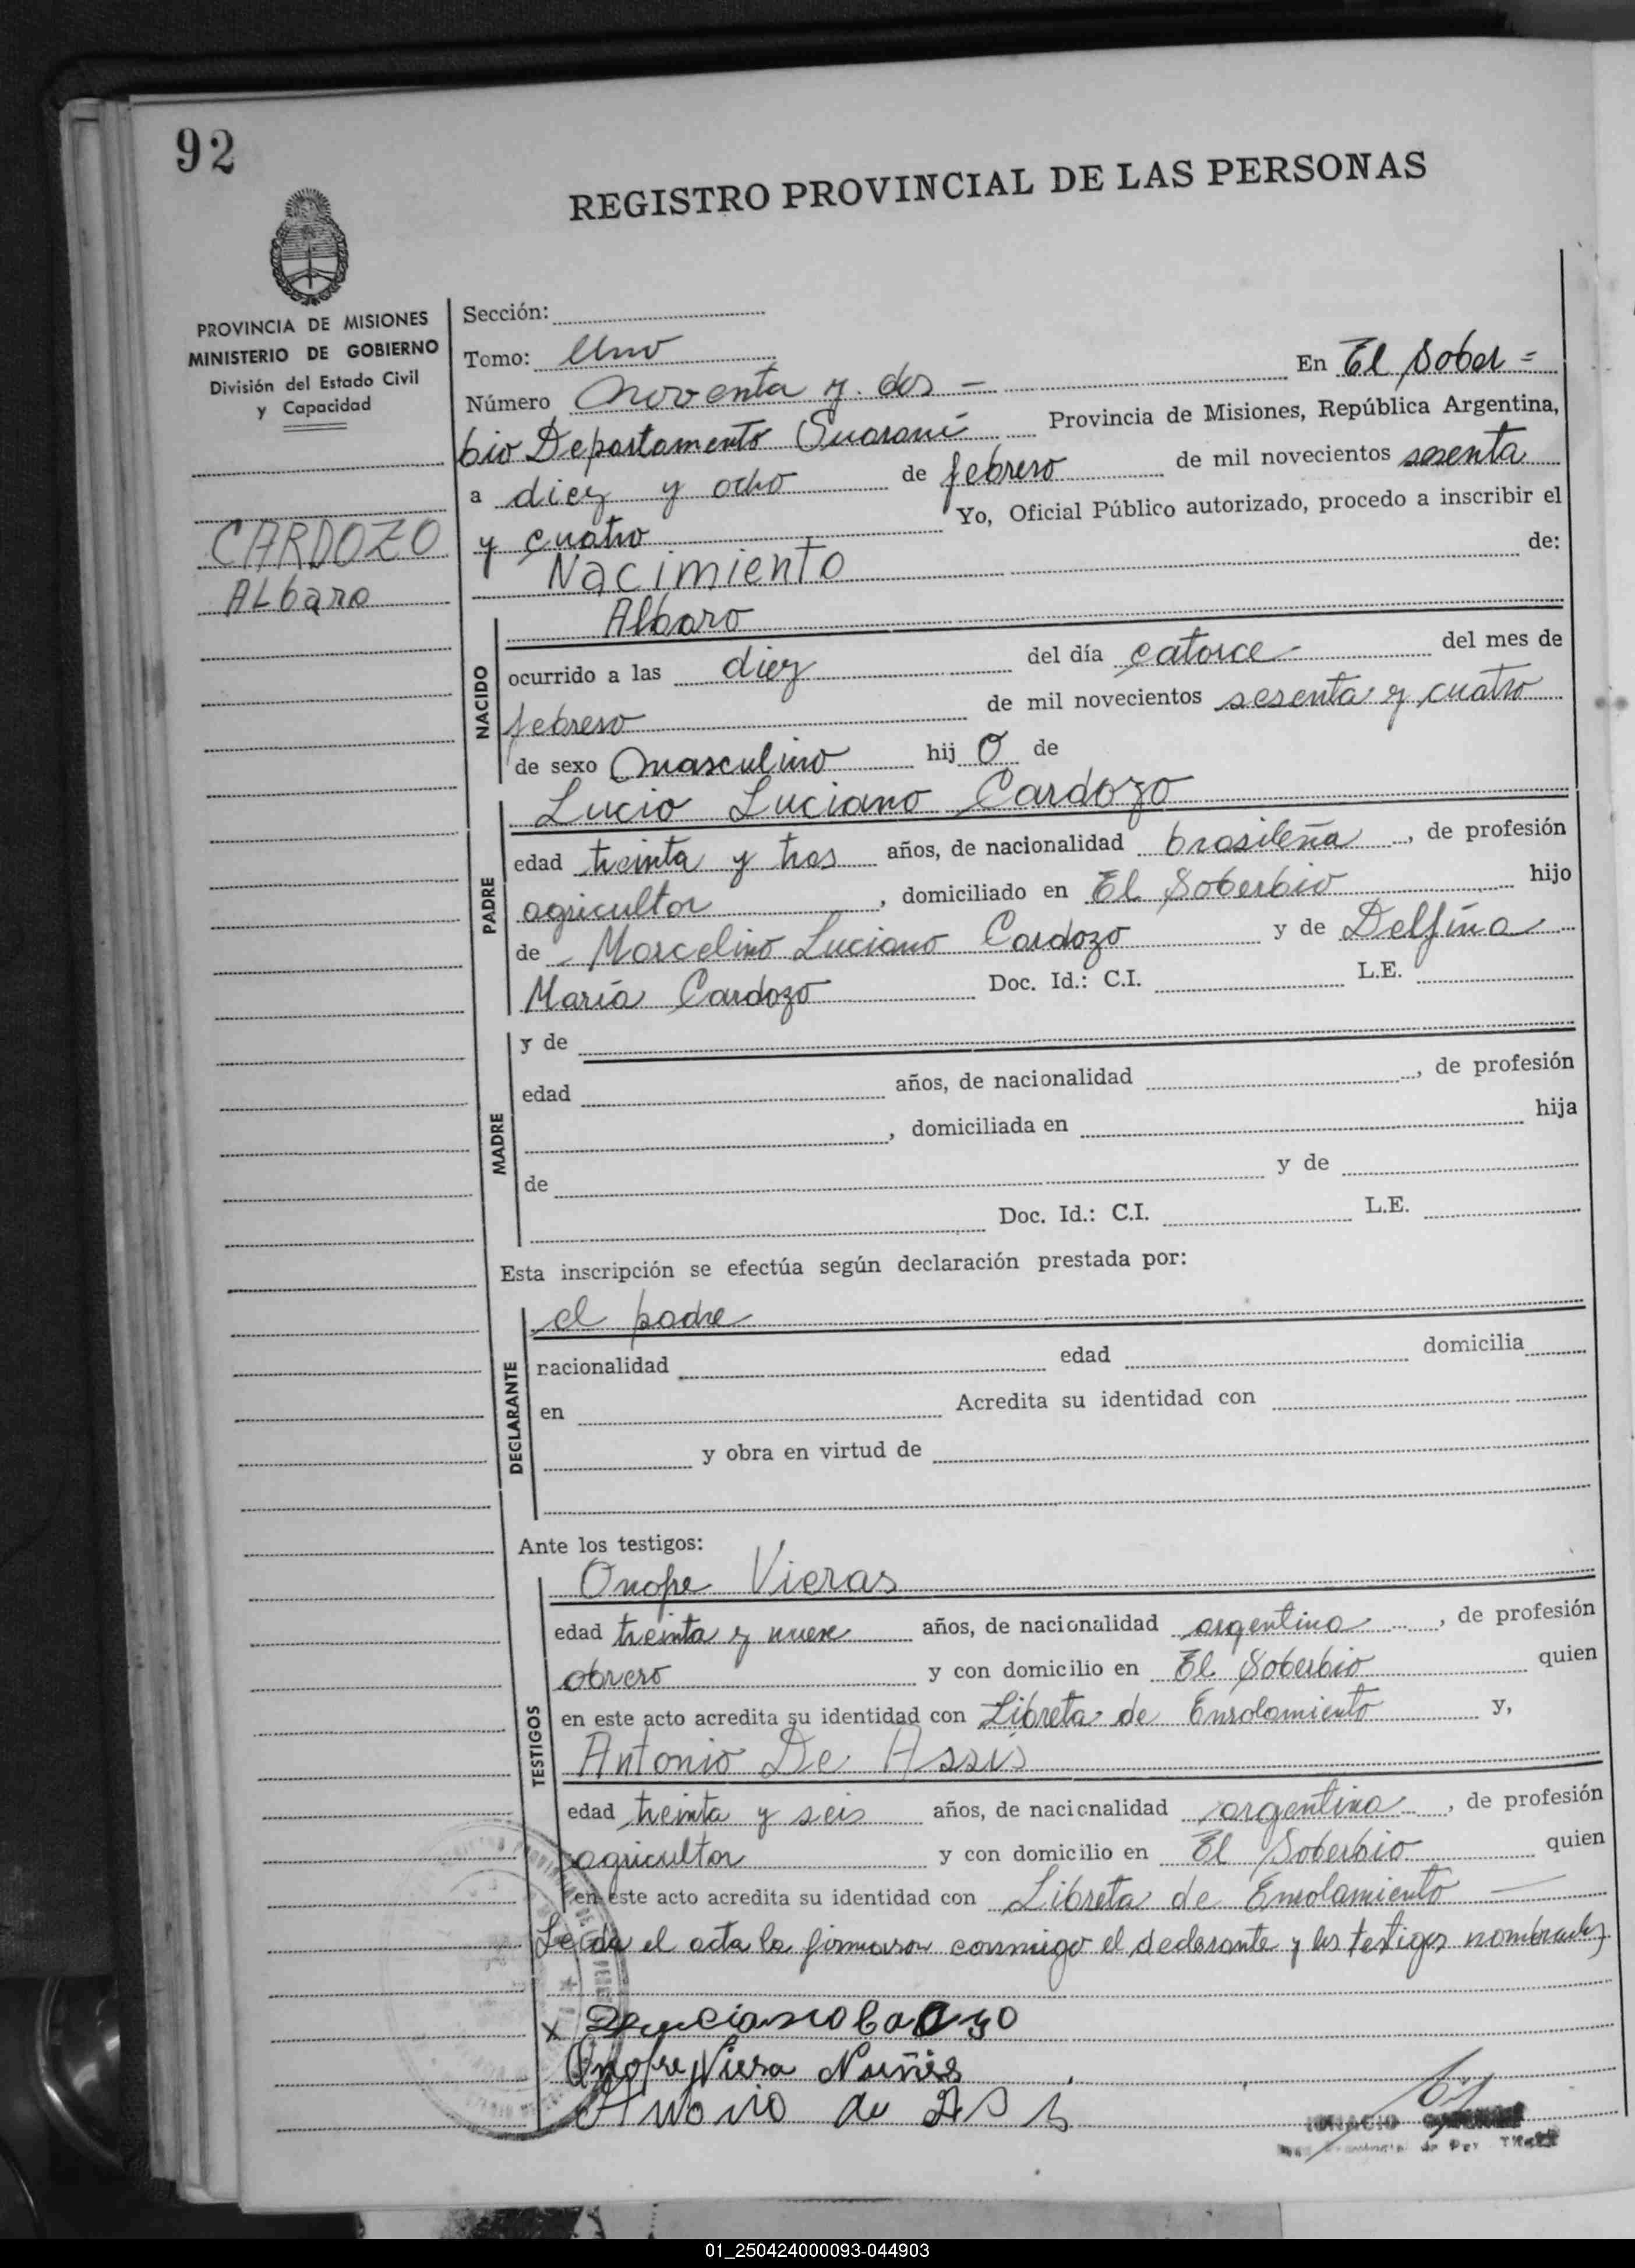 92
REGISTRO PROVINCIAL DE LAS PERSONAS
PROVINCIA DE MISIONES
MINISTERIO DE GOBIERNO
División del Estado Civil
y Capacidad
CARDOZO
ALbaro
Sección:
Tomo: Uno
Número noventa y dos = En El Sober=
bio Departamento Guaraní Provincia de Misiones, República Argentina,
a diez y ocho de febrero de mil novecientos sesenta
y cuatro Yo, Oficial Público autorizado, procedo a inscribir el
Nacimiento de:
NACIDO
Albaro
ocurrido a las diez del día catorce del mes de
febrero de mil novecientos sesenta y cuatro
de sexo masculino hij o de
PADRE
Lucio Luciano Cardozo
edad treinta y tres años, de nacionalidad brasileña, de profesión
agricultor, domiciliado en El Soberbio hijo
de Marcelino Luciano Cardozo y de Delfina
María Cardozo Doc. Id.: C.I. L.E.
MADRE
y de
edad años, de nacionalidad , de profesión
, domiciliada en hija
de y de
Doc. Id.: C.I. L.E.
Esta inscripción se efectúa según declaración prestada por:
DECLARANTE
el padre
nacionalidad edad domicilia
en Acredita su identidad con
y obra en virtud de
Ante los testigos:
TESTIGOS
Onofre Vieras
edad treinta y nueve años, de nacionalidad argentino, de profesión
obrero y con domicilio en El Soberbio quien
en este acto acredita su identidad con Libreta de Enrolamiento y,
Antonio De Assis
edad treinta y seis años, de nacionalidad argentino, de profesión
agricultor y con domicilio en El Soberbio quien
en este acto acredita su identidad con Libreta de Enrolamiento
Leida el acta la firmaron conmigo el declarante y los testigos nombrados
x
Onofre Viera Nuñes
IGNACIO
01_250424000093-044903